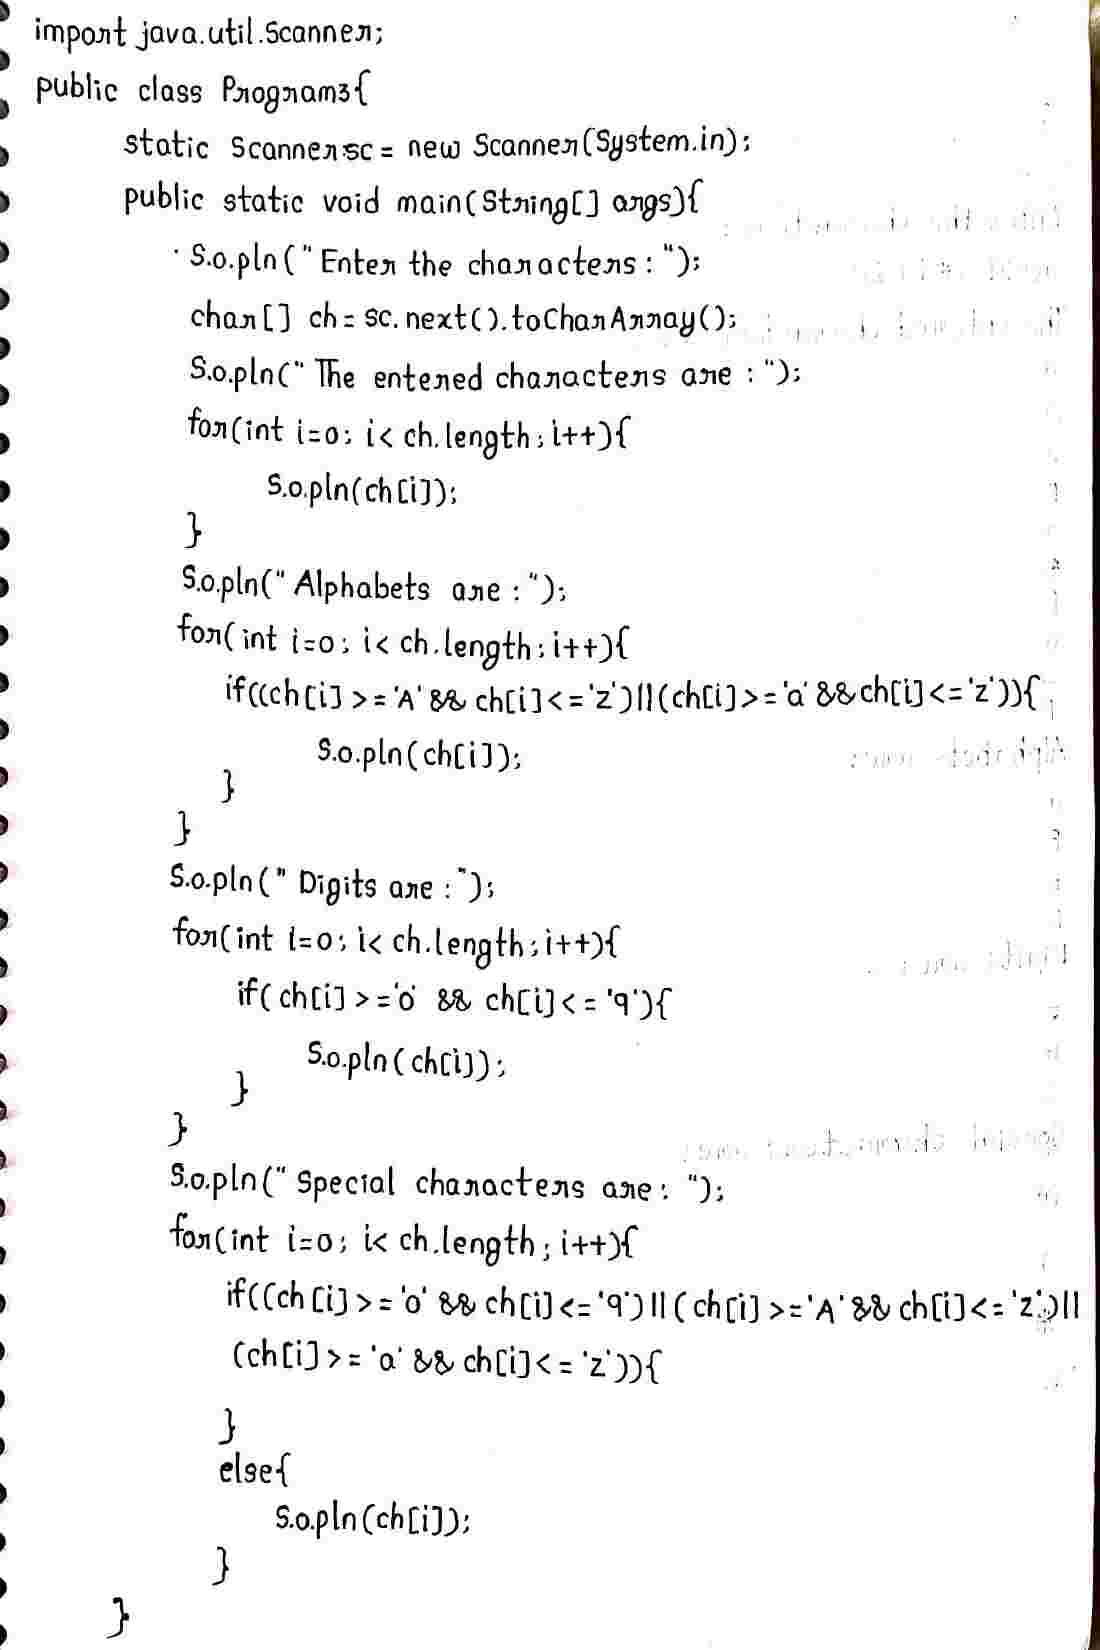 import java.util.Scanner;
public class Program3{
static Scanner sc = new Scanner(System.in);
public static void main(String[] args){
S.o.pln("Enter the characters : ");
char[] ch = sc.next().toCharArray();
S.o.pln("The entered characters are : ");
for(int i=0; i< ch.length; i++){
S.o.pln(ch[i]);
}
S.o.pln("Alphabets are : ");
for(int i=0; i< ch.length; i++){
if((ch[i] >= 'A' && ch[i] <= 'z')||(ch[i] >= 'a' && ch[i] <= 'z')){
S.o.pln(ch[i]);
}
}
S.o.pln(" Digits are : ");
for(int i=0; i< ch.length; i++){
if( ch[i] >= '0' && ch[i] <= '9'){
S.o.pln(ch[i]);
}
}
S.o.pln("Special characters are : ");
for(int i=0; i< ch.length; i++){
if((ch[i] >= '0' && ch[i] <= '9')||( ch[i] >= 'A' && ch[i] <= 'z')||
(ch[i] >= 'a' && ch[i] <= 'z')){
}
else{
S.o.pln(ch[i]);
}
}